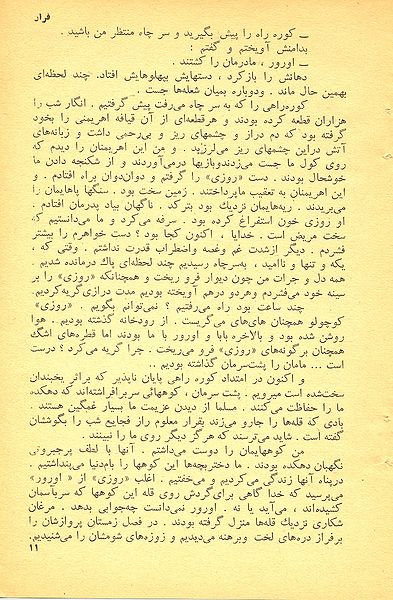 فرار
ــ کوره راه را پیش بگیرید و سر چاه منتظر من باشید .
بدامنش آویختم و گفتم :
ــ اورور ، مادرمان را کشتند .
دهانش را بازکرد ، دستهایش بپهلوهایش افتاد. چند لحظه‌ای
بهمین حال ماند . ودوباره بمیان شعله‌ها جست .
کوره‌راهی را که به سر چاه می‌رفت پیش گرفتیم . انگار شب را
هزاران قطعه کرده بودند و هرقطعه‌ای از آن قیافه اهریمنی را بخود
گرفته بود که دم دراز و چشمهای ریز و بی‌رحمی داشت و زبانه‌های
آتش دراین چشمهای ریز می‌لرزید . و من این اهریمنان را دیدم که
روی کول ما جست می‌زدندوبازیها درمی‌آوردند و از شکنجه دادن ما
خوشحال بودند . دست «روزی» را گرفتم و دوان‌دوان براه افتادم . و
این اهریمنان به تعقیب ماپرداختند . زمین سخت بود . سنگها پاهایمان را
می‌بریدند . ریه‌هایمان نزدیك بود بترکد . ناگهان بیاد پدرمان افتادم .
او روزی خون استفراغ کرده بود . سرفه می‌کرد و ما می‌دانستیم که
سخت مریض است . خدایا ، اکنون کجا بود ؟ دست خواهرم را بیشتر
فشردم . دیگر ازشدت غم وغصه واضطراب قدرت نداشتم . وقتی که ،
یکه و تنها و ناامید ، به‌سرچاه رسیدیم چند لحظه‌ای پاك درمانده شدیم .
همه دل و جرات من چون دیوار فرو ریخت و همچنانکه «روزی» را بر
سینه خود می‌فشردم وهردو درهم آویخته بودیم مدت درازی گریه‌کردیم.
چند ساعت بود راه می‌رفتیم ؟ نمی‌توانم بگویم . «روزی»
کوچولو همچنان های‌های می‌گریست . از رودخانه گذشته بودیم . هوا
روشن شده بود و بالاخره بابا و اورور با ما بودند اما قطره‌های اشگ
همچنان برگونه‌های «روزی» فرو می‌ریخت . چرا گریه می‌کرد ؟ درست
است ... مامان را پشت‌سرمان گذاشته بودیم ..
و اکنون در امتداد کوره راهی پایان ناپذیر که براثر یخبندان
سخت‌شده است میرویم . پشت سرمان ، کوههائی سربرافراشته‌اند که دهکده
ما را حفاظت می‌کنند . مسلما از دیدن عزیمت ما بسیار غمگین هستند .
بادی که قله‌ها را جارو می‌زند بقرار معلوم راز فجایع شب را بگوششان
گفته است . شاید می‌ترسند که هرگز دیگر روی ما را نبینند .
من کوههایمان را دوست می‌داشتم . آنها با لطف پرجبروتی
نگهبان دهکده بودند . ما دختربچه‌ها این کوهها را بام‌دنیا می‌پنداشتیم .
درپناه آنها زندگی می‌کردیم و می‌خفتیم . اغلب «روزی» از « اورور»
می‌پرسید که خدا گاهی برای‌گردش روی قله این کوهها که سربآسمان
کشیده‌اند ، می‌آید یا نه . اورور نمی‌دانست چه‌جوابی بدهد . مرغان
شکاری نزدیك قله‌ها منزل گرفته بودند . در فصل زمستان پروازشان را
برفراز دره‌های لخت وبرهنه می‌دیدیم و زوزه‌های شومشان را می‌شنیدیم.
۱۱